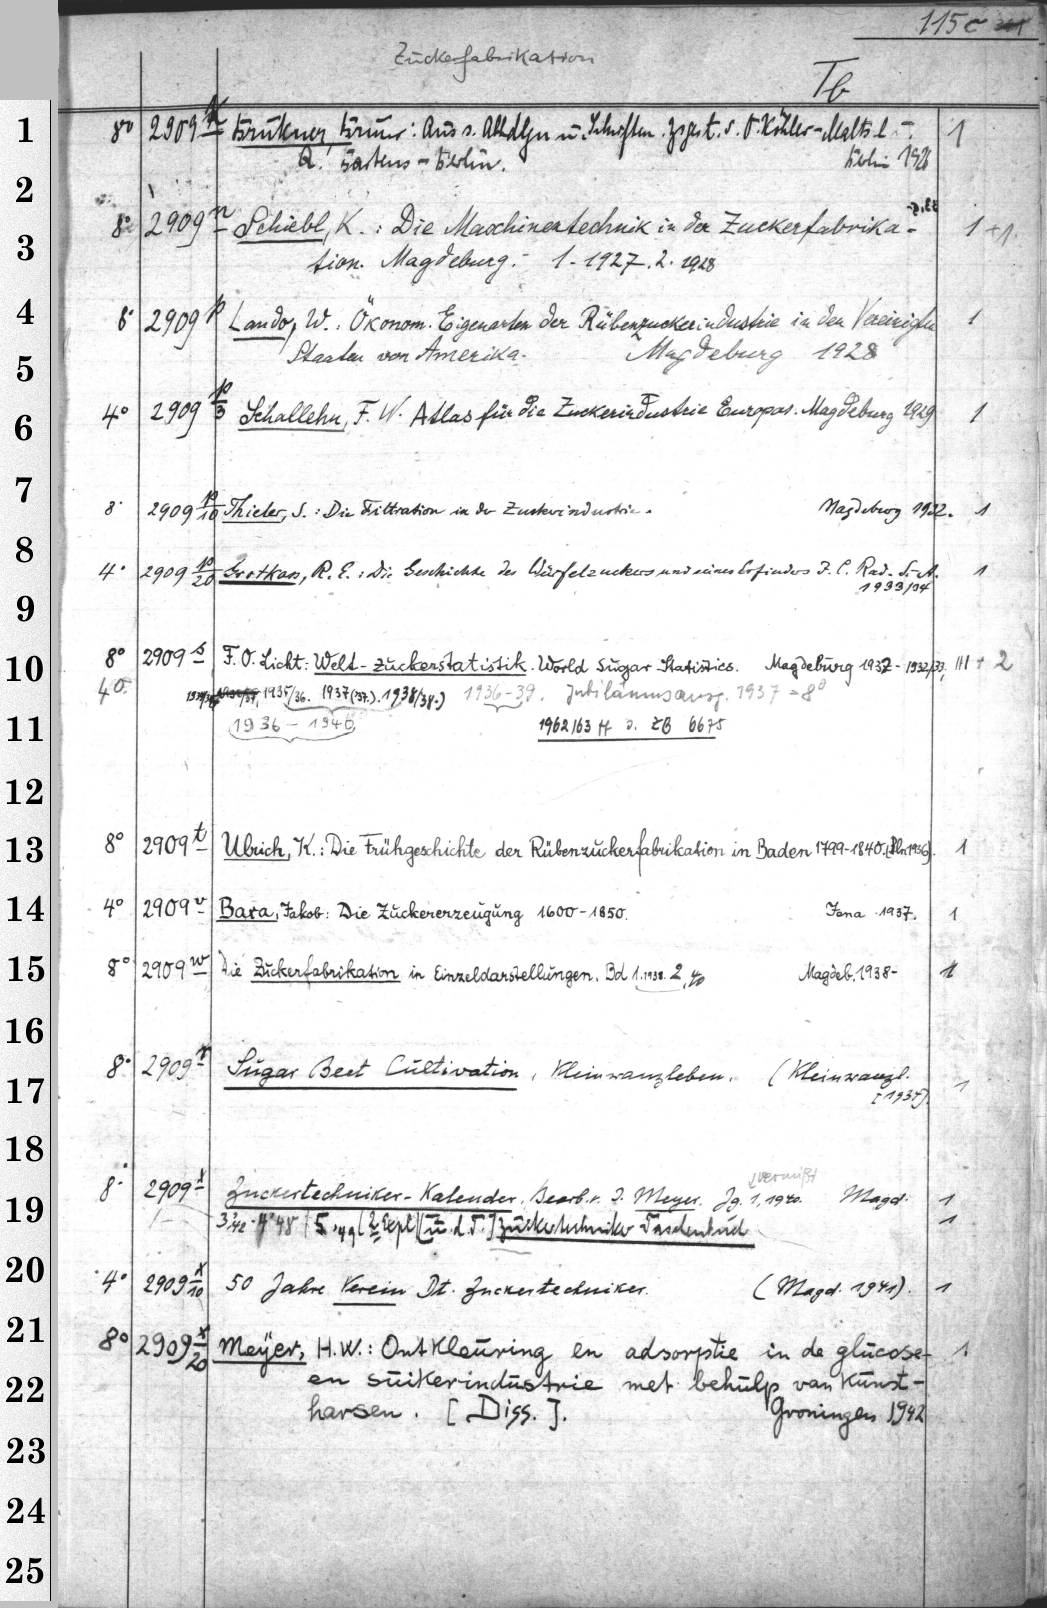 115 c
Zuckerfabrikation
Tb
1 8° 2909 Brukner, Bruno: Aus s. Abhdlgn u. Schriften. zsgest. v. O. Köhler-Malts 1
2 Berlin. Berlin 1926
8° 2909 n Schiebl, K.: Die Maschinentechnik in der Zuckerfabrika- 1 +1.
3 tion. Magdeburg. 1-1927. 2. 1928
4 8° 2909 p Lando, W.: Ökonom. Eigenarten der Rübenzuckerindustrie in den Vereinigten 1
5 Staaten von Amerika. Magdeburg 1928
6 4° 2909 p/3 Schallehn, F. W. Atlas für die Zuckerindustrie Europas. Magdeburg 1929 1
7 8° 2909 p/10 Thieler, S.: Die Filtration in der Zuckerindustrie. Magdeburg 1932. 1
8 4° 2909 p/20 Grotkass, R. E.: Die Geschichte des Würfelzuckers und seines Erfinders J. C. Rad. S.-A. 1
9 1933/34
10 8° 2909 s F. O. Licht: Welt-Zuckerstatistik. World Sugar Statistics. Magdeburg 1932-1932/33, III + 2
4° 1935/36. 1937(37.). 1938/38.) 1936-39. Jubiläumsausg. 1937 = 8°
11 1936-1940 1962/63 ff s. ZB 6675
12
13 8° 2909 t Ulrich, K.: Die Frühgeschichte der Rübenzuckerfabrikation in Baden 1799-1840. (Bln 1936). 1
14 4° 2909 v Baxa, Jakob: Die Zuckererzeugung 1600-1850. Jena 1937. 1
15 8° 2909 w Die Zuckerfabrikation in Einzeldarstellungen. Bd 1.1938. 2,40 Magdeb. 1938- 1
16
17 8° 2909 Sugar Beet Cultivation, Kleinwanzleben. (Kleinwanzl. 1
[1937]).
18 vermißt
8° 2909 x Zuckertechniker-Kalender. Bearb. v. J. Meyer. Jg. 1, 1940. Magd. 1
19 3,'42- 4'48 5,49 [2. Sept] [u. d. T.] Zuckertechniker Taschenbuch 1
20 4° 2909 x/10 50 Jahre Verein Dt. Zuckertechniker. (Magd. 1941). 1
21 8° 2909 x/20 Meÿer, H.W.: Ontkleuring en adsorptie in de glucose- 1
22 en suikerindustrie met behulp van kunst-
harsen. [Diss.]. Groningen 1942
23
24
25